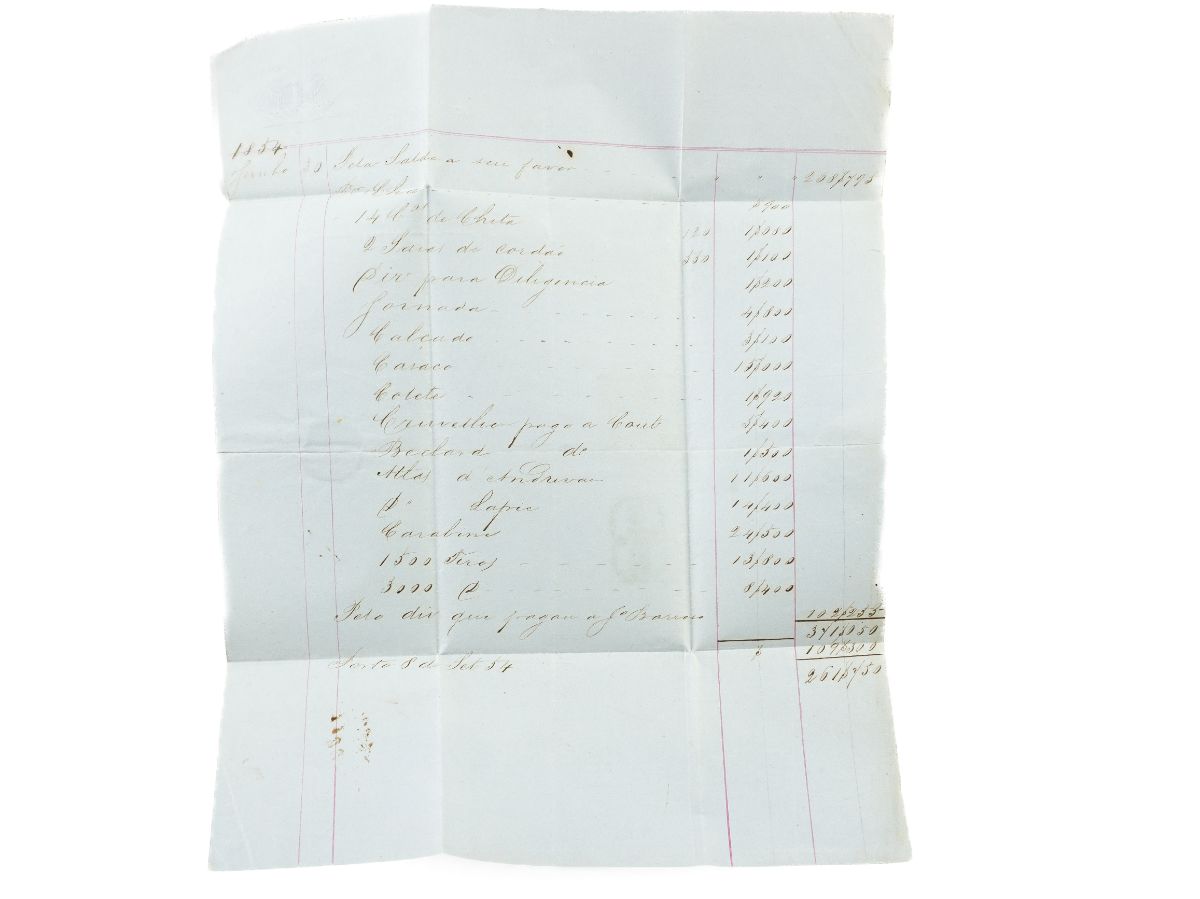 1854
Junho 30 Pelo Saldo a seu favor " " " 208$795
$900
14 C.os de Chita 120 1$080
2 Pares de cordão 550 1$100
Dir.o para Diligencia 1$200
Jornada 4$800
Calçado 3$100
Casaco 15$000
Colete 1$920
Cruveilhier pago a Cout.o
Beclard do 1$500
Atlas d'Andrivau 11$600
D.o Lapie 14$400
Carabine 24$500
1500 Tiros 13$800
3000 D.o 8$400
Pelo dir.o que pagou a J.e Barros 102$255
371$050
$ 109$300
Porto 8 de Set 54 261$750